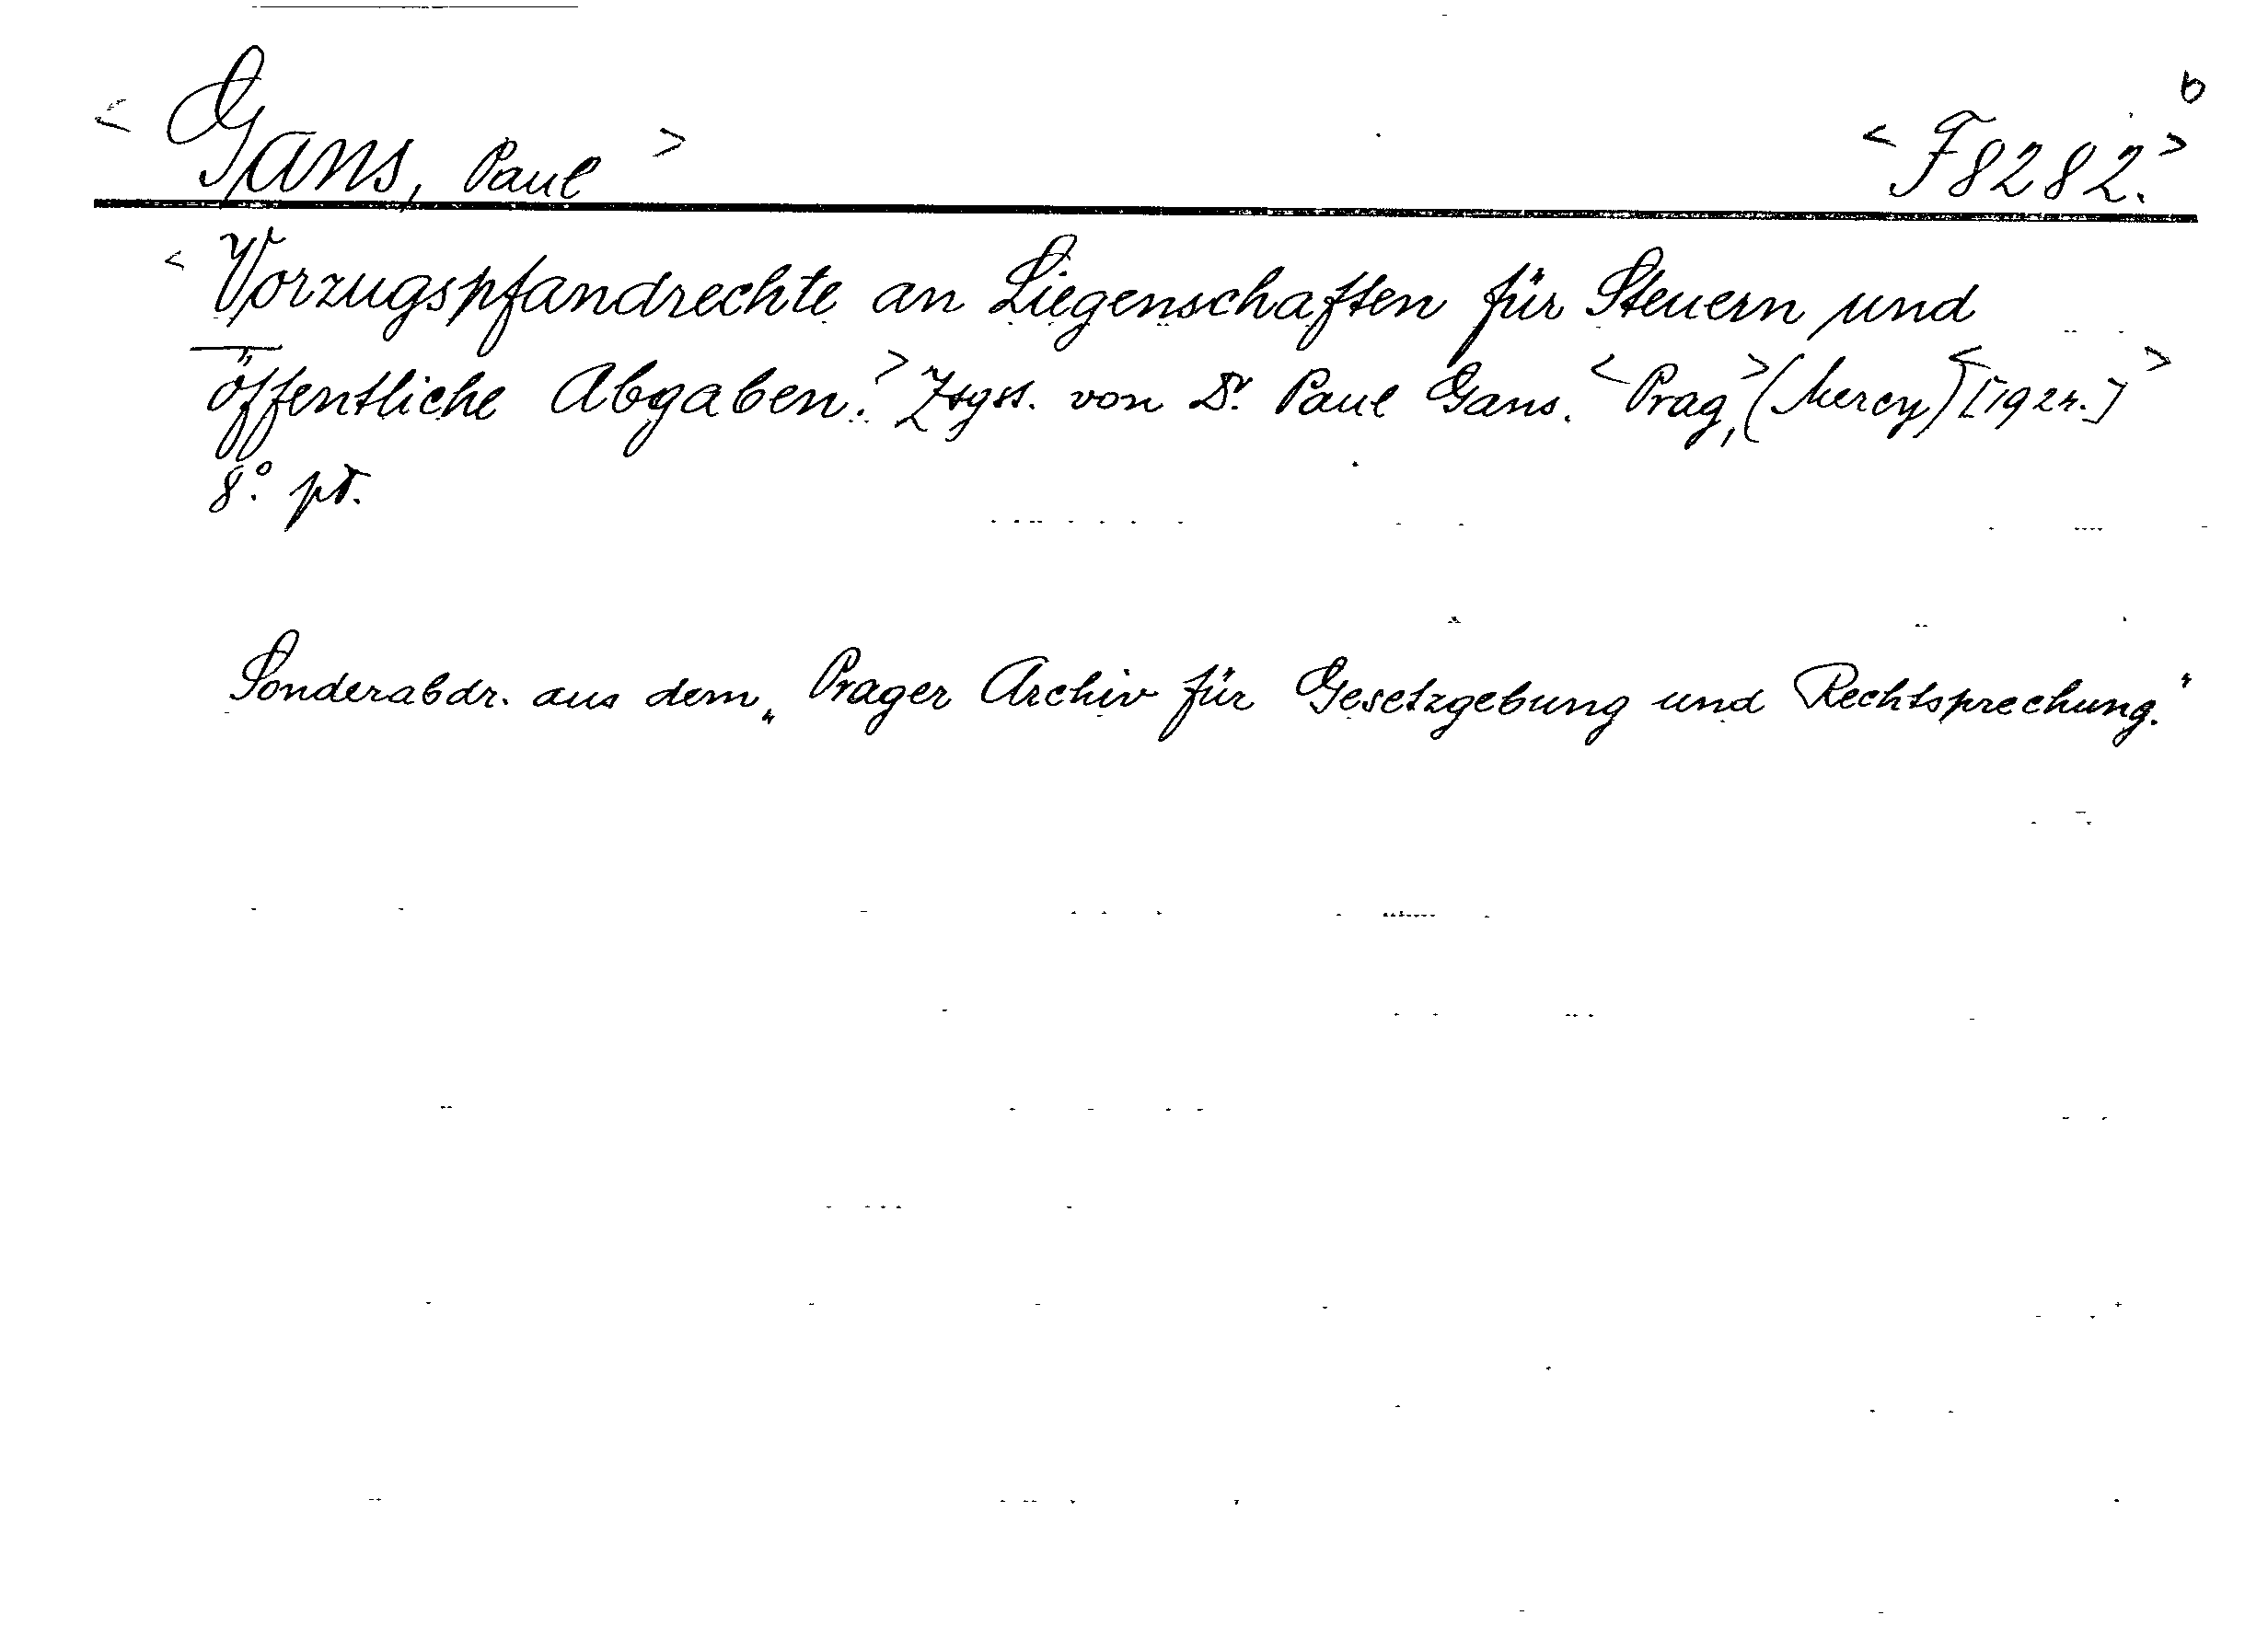 < Gans, Paul > < F 8282. > b
< Vorzugspfandrechte an Liegenschaften für Steuern und
öffentliche Abgaben. > Zsgst. von Dr. Paul Gans. < Prag, > (Mercy) < [192
8°. pt.
Sonderabdr. aus dem „Prager Archiv für Gesetzgebung und Rechtsprechung."